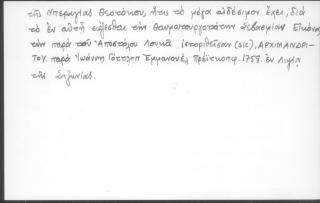 τῆς Μπεργγίας Θεοτόκου, ἥτις τὸ μέγα αἰδέσιμον ἔχει, διὰ
τὸ ἐν αὐτῇ εὑρέσθαι τὴν θαυματουργοτάτην σεβασμίαν Εἰκόνα
τὴν παρὰ τοῦ Ἀποστόλου Λουκᾶ ἱστορηθεῖσαν (sic), ΑΡΧΙΜΑΝΔΡΙ-
ΤΟΥ. παρὰ Ἰωάννῃ Γότελοπ Ἐμμανουὲλ Πρέϊτκοπφ. 1759. ἐν Λιψίᾳ
τῆς Σαξωνίας.